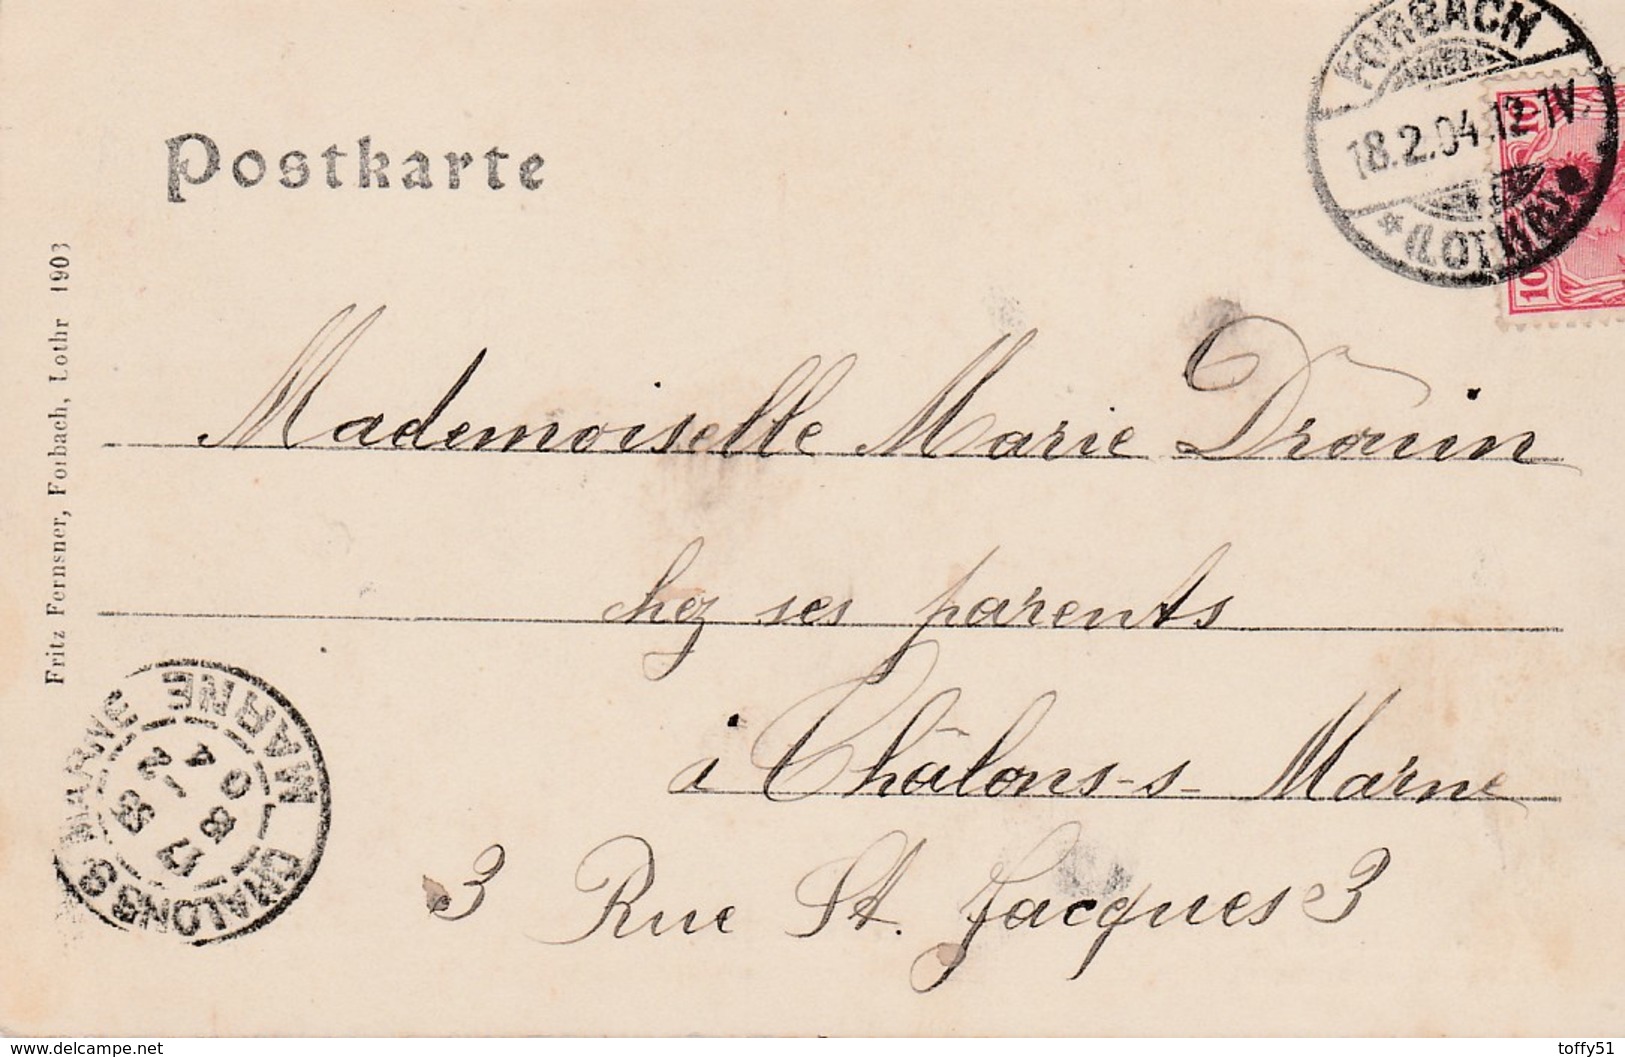 Postkarte
FORBACH
18.2.04.12-1V.
* (LOTHR) *
10
10
Fritz Fernsner, Forbach, Lothr 1903
Mademoiselle Marie Drouin
chez ses parents
à Châlons-s- Marne
3 Rue St. Jacques 3
CHALONS S MARNE
MARNE
www.delcampe.net
toffy51